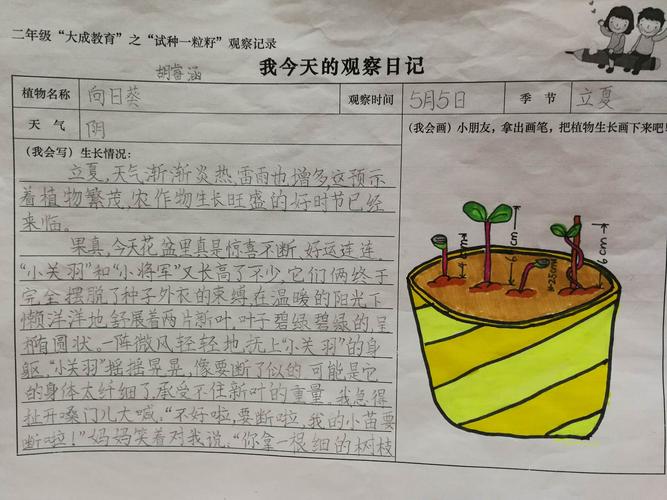 二年级“大成教育”之“试种一粒籽”观察记录
胡睿涵
我今天的观察日记
植物名称 向日葵 观察时间 5月5日 季节 立夏
天气 阴
(我会画)小朋友，拿出画笔，把植物生长画下来吧！
(我会写)生长情况：
立夏，天气渐渐炎热，雷雨也增多，这预示
着植物繁茂，农作物生长旺盛的好时节已经
来临。
果真，今天花盆里真是惊喜不断，好运连连。
“小关羽”和“小将军”又长高了不少，它们俩终于
完全摆脱了种子外衣的束缚，在温暖的阳光下
懒洋洋地舒展着两片新叶，叶子碧绿碧绿的，呈
椭圆状。一阵微风轻轻地抚上“小关羽”的身
躯，“小关羽”摇摇晃晃，像要断了似的，可能是它
的身体太纤细了，承受不住新叶的重量，我急得
扯开嗓门儿大喊，“不好啦，要断啦，我的小苗要
断啦！”妈妈笑着对我说，“你拿一根细的树枝
4cm
6cm
2.5cm
6cm